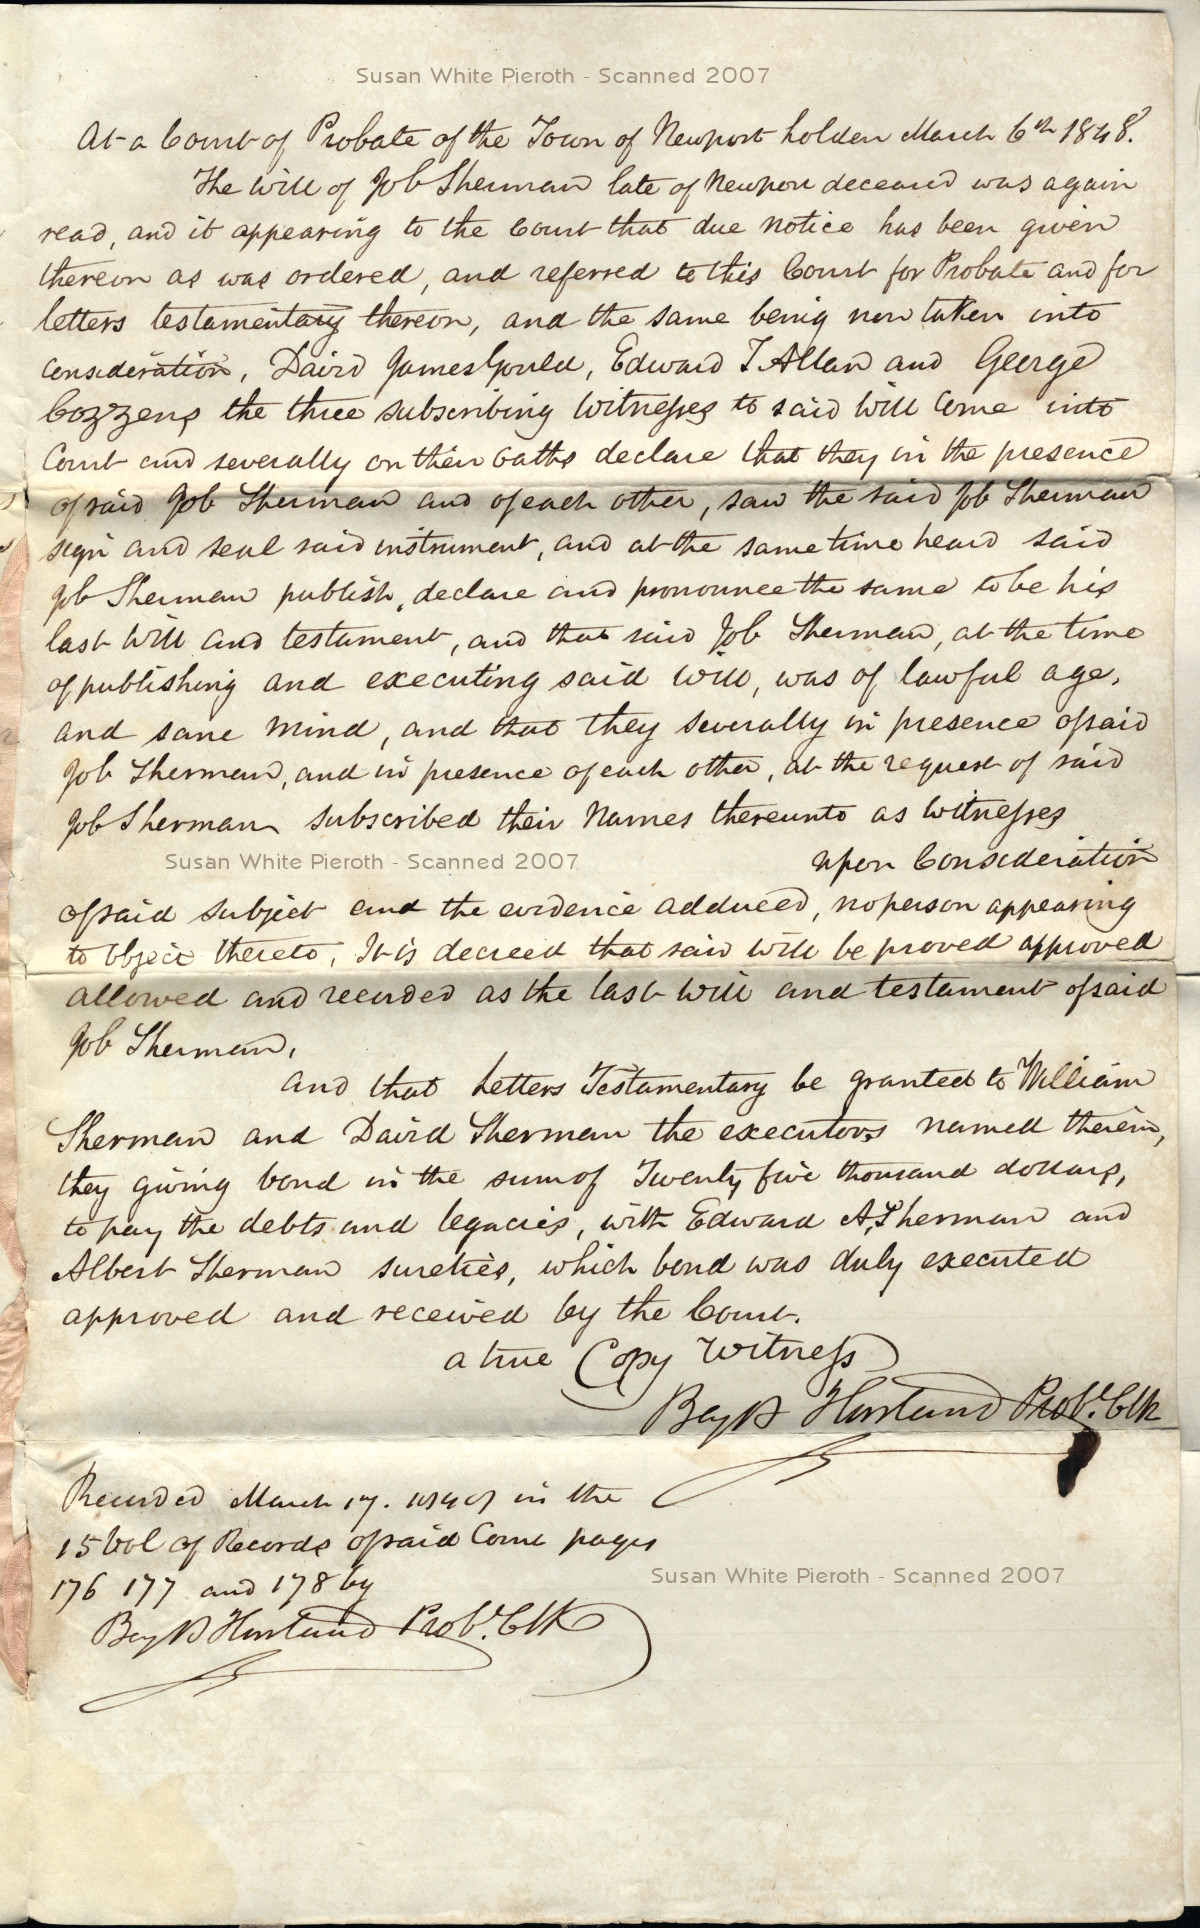 Susan White Pieroth - Scanned 2007
At a Court of Probate of the Town of Newport holden March 6th 1848.
The Will of Job Sherman late of Newport deceased was again
read, and it appearing to the Court that due notice has been given
thereon as was ordered, and referred to this Court for Probate and for
letters testamentary thereon, and the same being now taken into
consideration, David James Gould, Edward T Allan and George
Cozzens the three subscribing Witnesses to said Will come into
Court and severally on their oaths declare that they in the presence
of said Job Sherman and of each other, saw the said Job Sherman
sign and seal said instrument, and at the same time heard said
Job Sherman publish, declare and pronounce the same to be his
last Will and testament, and that said Job Sherman, at the time
of publishing and executing said Will, was of lawful age,
and sane mind, and that they severally in presence of said
Job Sherman, and in presence of each other, at the request of said
Job Sherman subscribed their Names thereunto as Witnesses
Susan White Pieroth - Scanned 2007
upon Consideration
of said subject and the evidence adduced, no person appearing
to object thereto, It is decreed that said Will be proved approved
allowed and recorded as the last Will and testament of said
Job Sherman,
and that Letters Testamentary be granted to William
Sherman and David Sherman the executors named therein,
they giving bond in the sum of Twenty five thousand dollars,
to pay the debts and legacies, with Edward A. Sherman and
Albert Sherman sureties, which bond was duly executed
approved and received by the Court.
a true Copy Witness
Benj B Howland Prob. Clk
Recorded March 17. in the
15 Vol of Records of said Court pages
176 177 and 178 by
Susan White Pieroth - Scanned 2007
Benj B Howland Prob. Clk